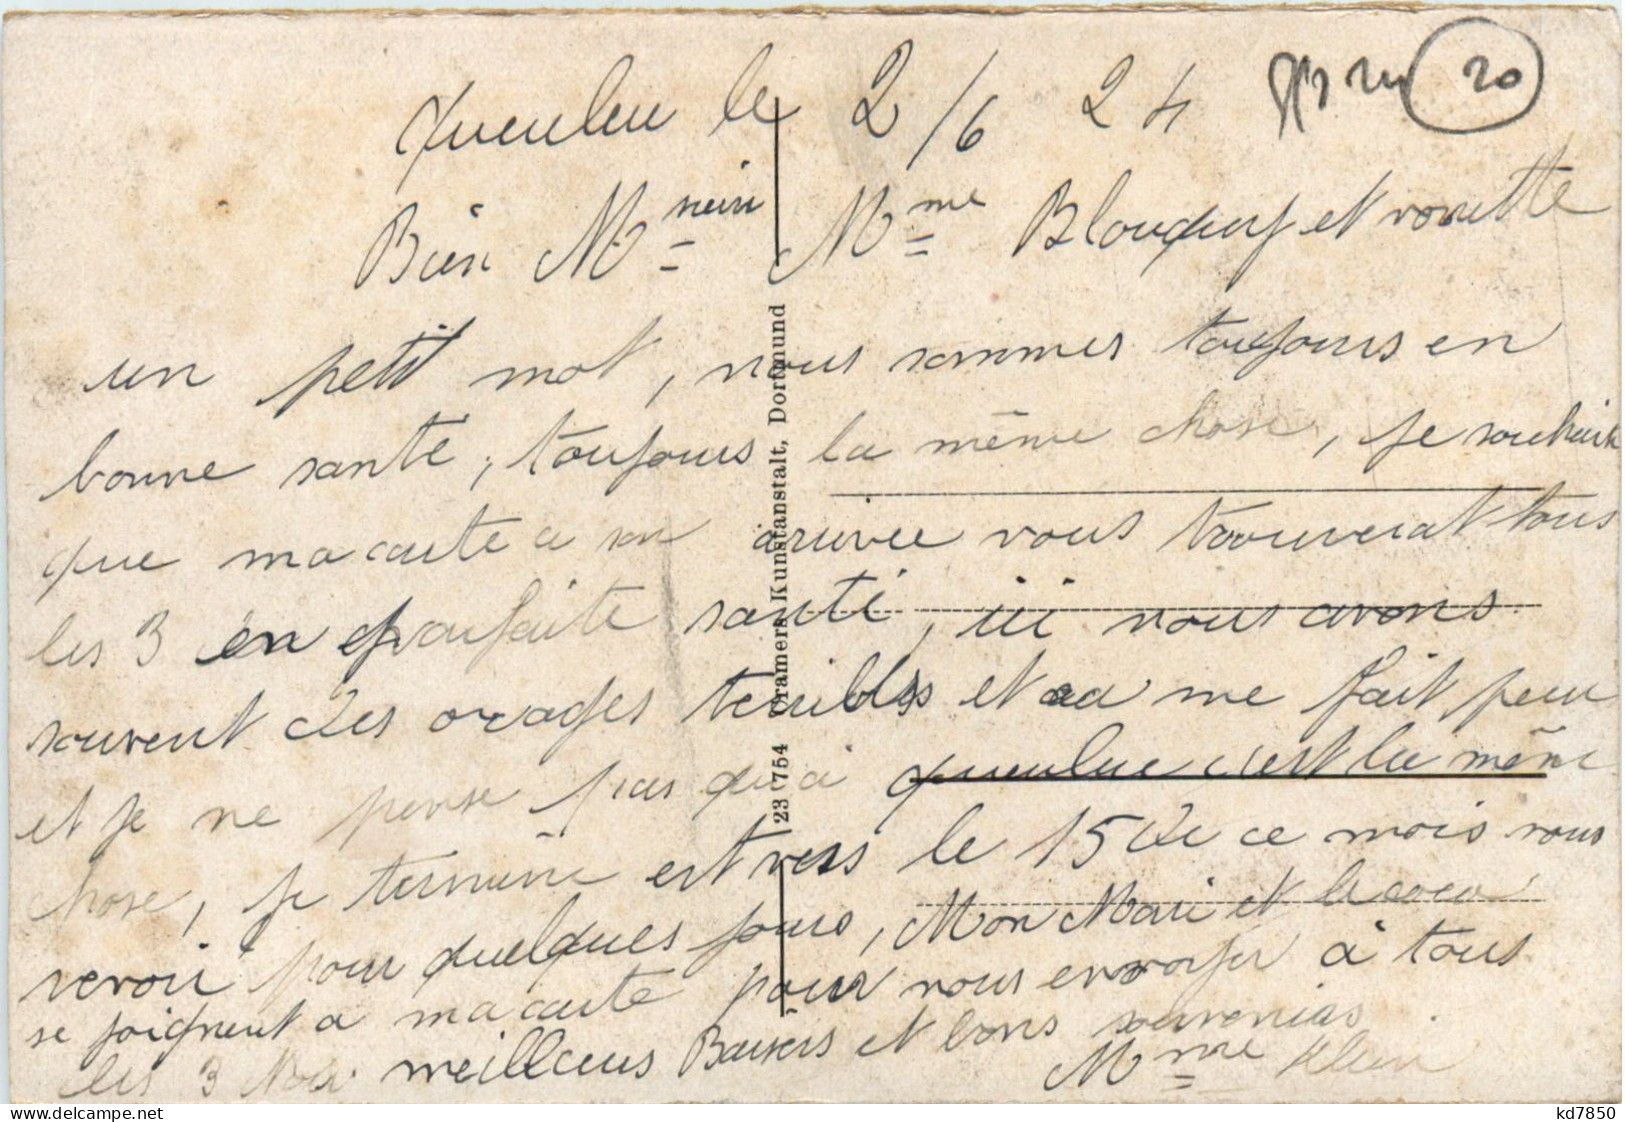 queuleu le 2/6 24
20
Bien Mnsieu Mme et
un petit mot, nous sommes toujours en
bonne sante, toujours la même chose, je souhaite
que ma carte a son arivee vous trouverat tous
les 3 en parfaite santé, ici nous avons
souvent des orages terribles et ca me fait peur
et je ne pense pas qu'a queuleu c'est la même
chose, je termine est vers le 15 de ce mois vous
revoir pour quelques jours, Mon Mari et le coco
se joignent a ma carte pour vous envoyer à tous
les 3 Nos meilleurs Baisers et bons souvenirs
Mme Klein
23 754 Cramers Kunstanstalt, Dortmund
kd7850